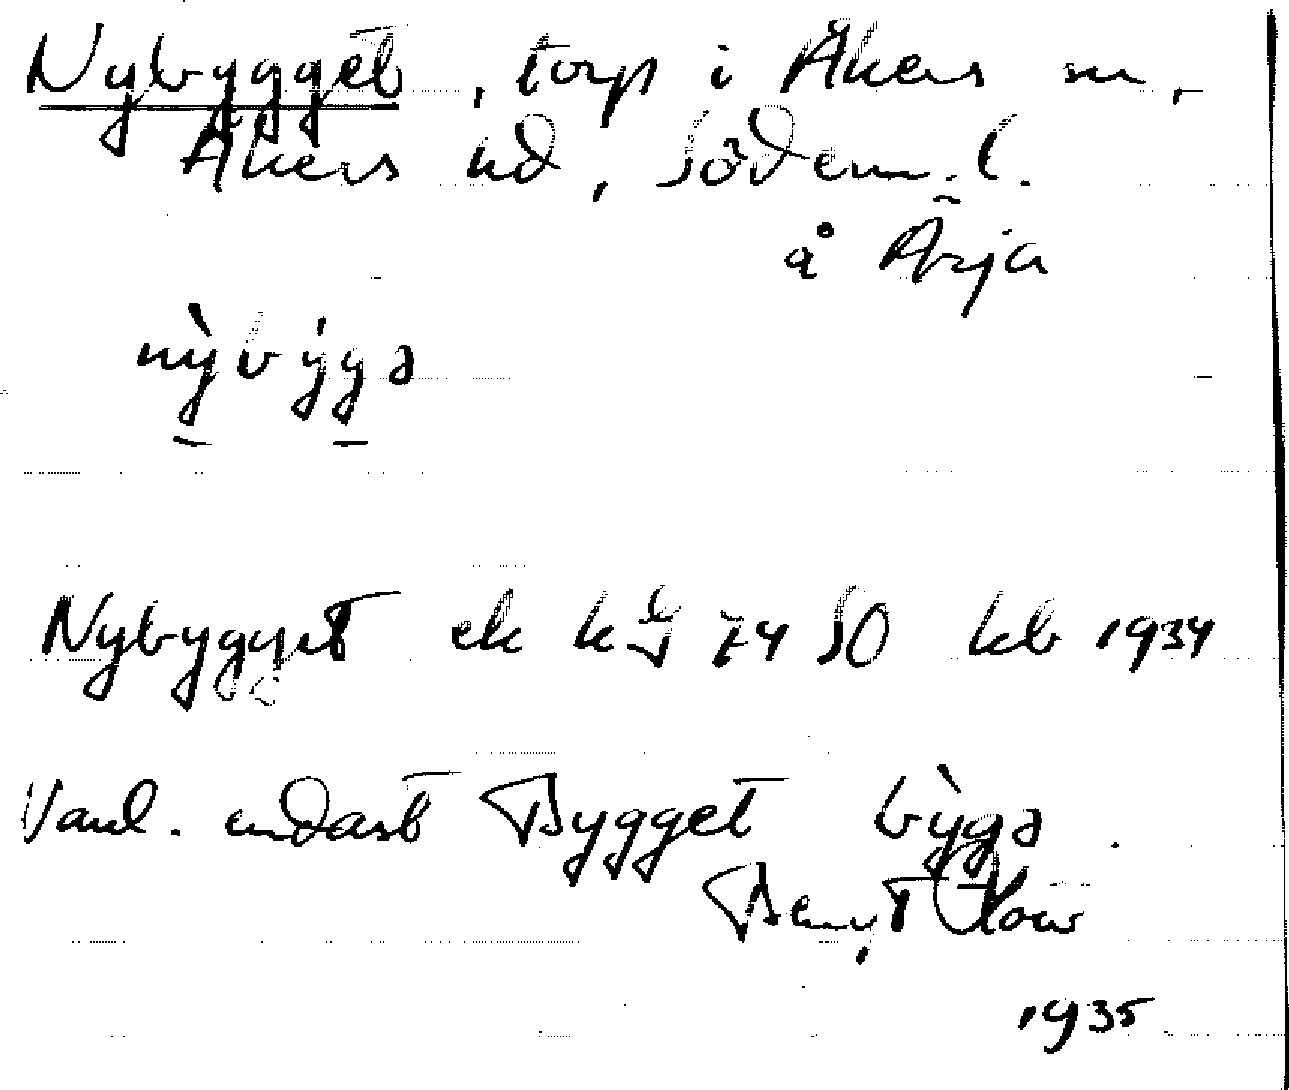 Nybygget, torp i Åkers sn,
Åkers hd, Söderm. l.
å Ärja
nỳbýgə
Nybygget ek kbl 74 SO kb 1934
Vanl. endast Bygget bỳgə
Bengt
1935